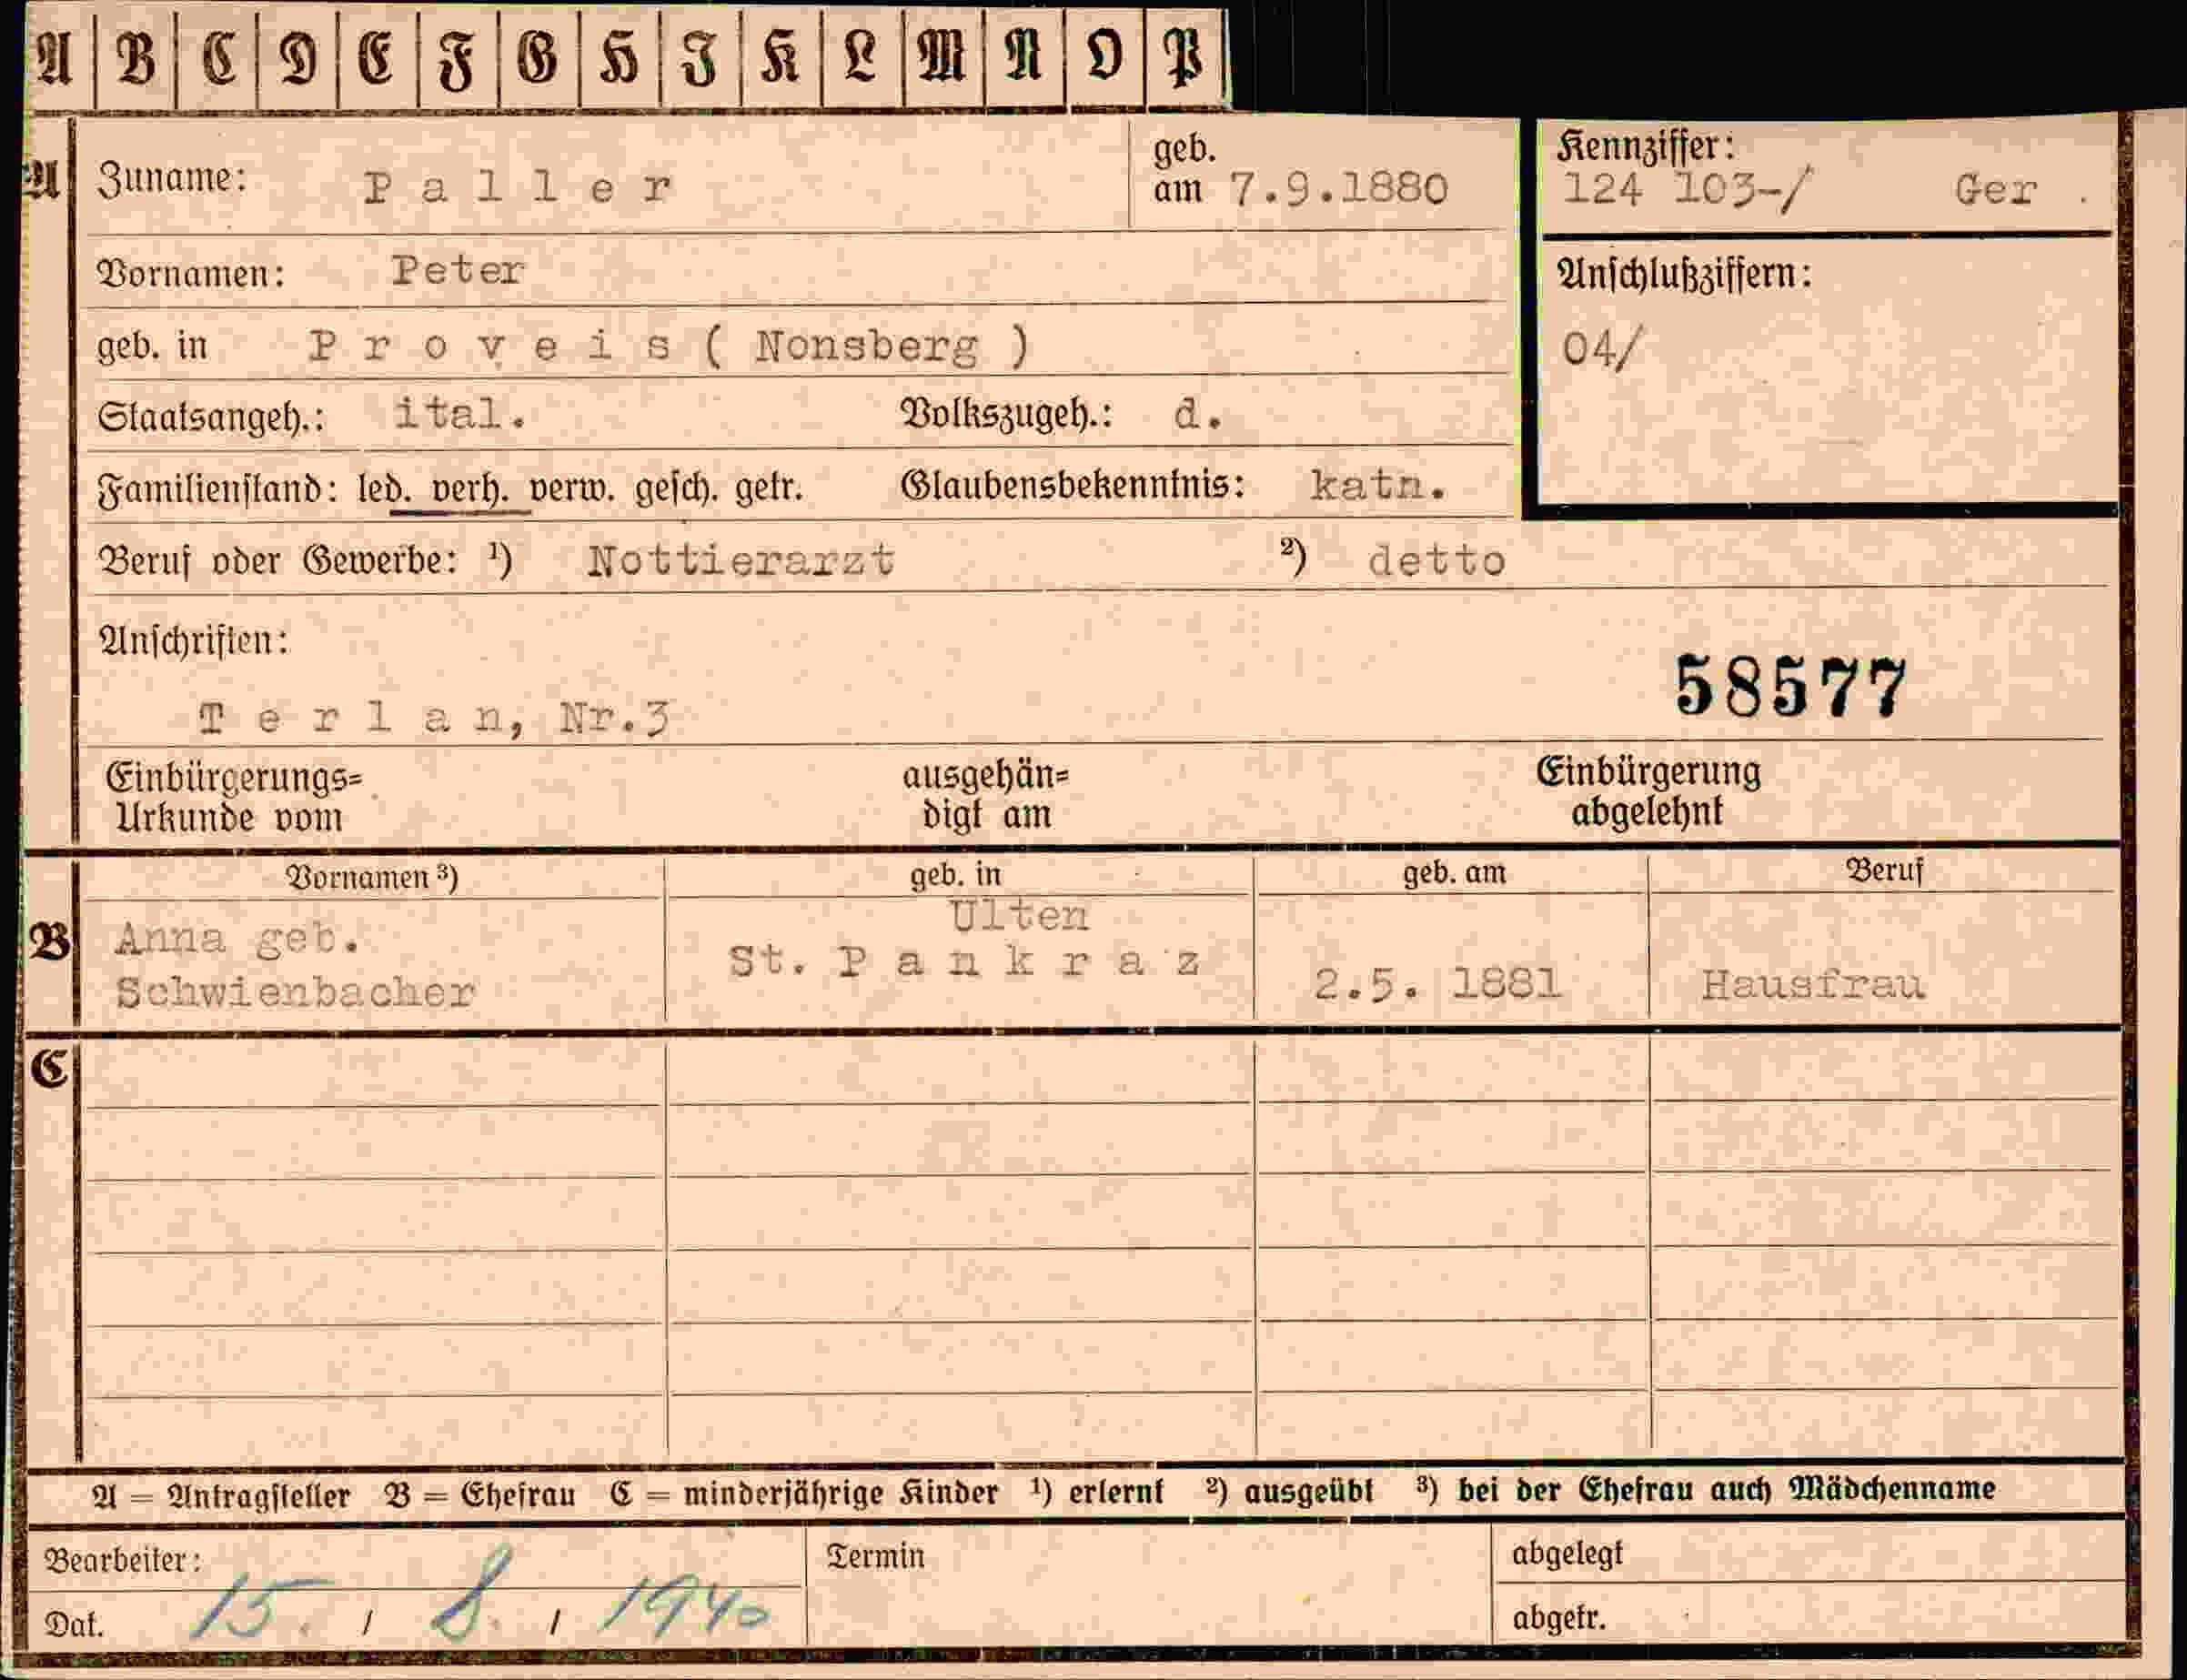 A B C D E F G H I K L M N O P
A Zuname: Paller geb. am 7.9.1880 Kennziffer: 124 103-/ Ger .
Vornamen: Peter Anschlußziffern:
geb. in Proveis ( Nonsberg ) 04/
Staatsangeh.: ital. Volkszugeh.: d.
Familienstand: led. verh. verw. gesch. getr. Glaubensbekenntnis: kath.
Beruf oder Gewerbe: ¹) Nottierarzt ²) detto
Anschriften:
58577
Terlan, Nr.3
Einbürgerungs= ausgehän= Einbürgerung
Urkunde vom digt am abgelehnt
Vornamen ³) geb. in geb. am Beruf
Ulten
B Anna geb. St. Pankraz
Schwienbacher 2.5. 1881 Hausfrau
C
A = Antragsteller B = Ehefrau C = minderjährige Kinder ¹) erlernt ²) ausgeübt ³) bei der Ehefrau auch Mädchenname
Bearbeiter: Termin abgelegt
Dat. 15. / 8. / 1940 abgetr.